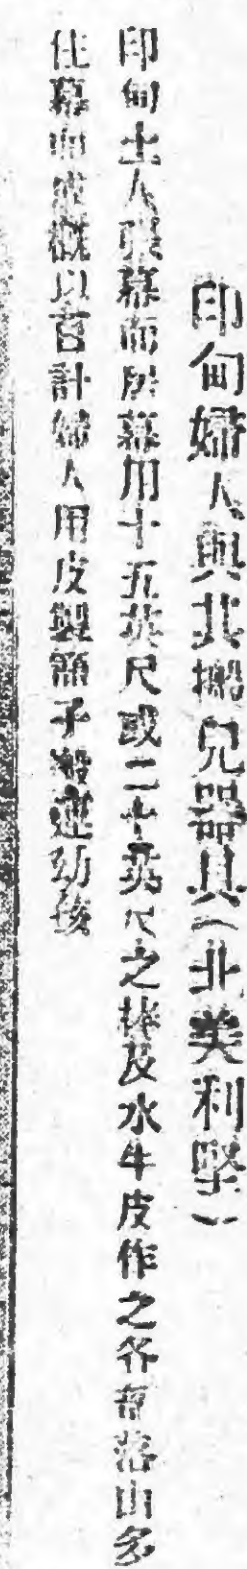 印甸婦人與其搬兒器具(北美利堅)
印甸土人張幕而居幕用十五英尺或二十英尺之棒及水牛皮作之各部落由多
住幕中數以百計婦人用皮製籠子搬運幼孩